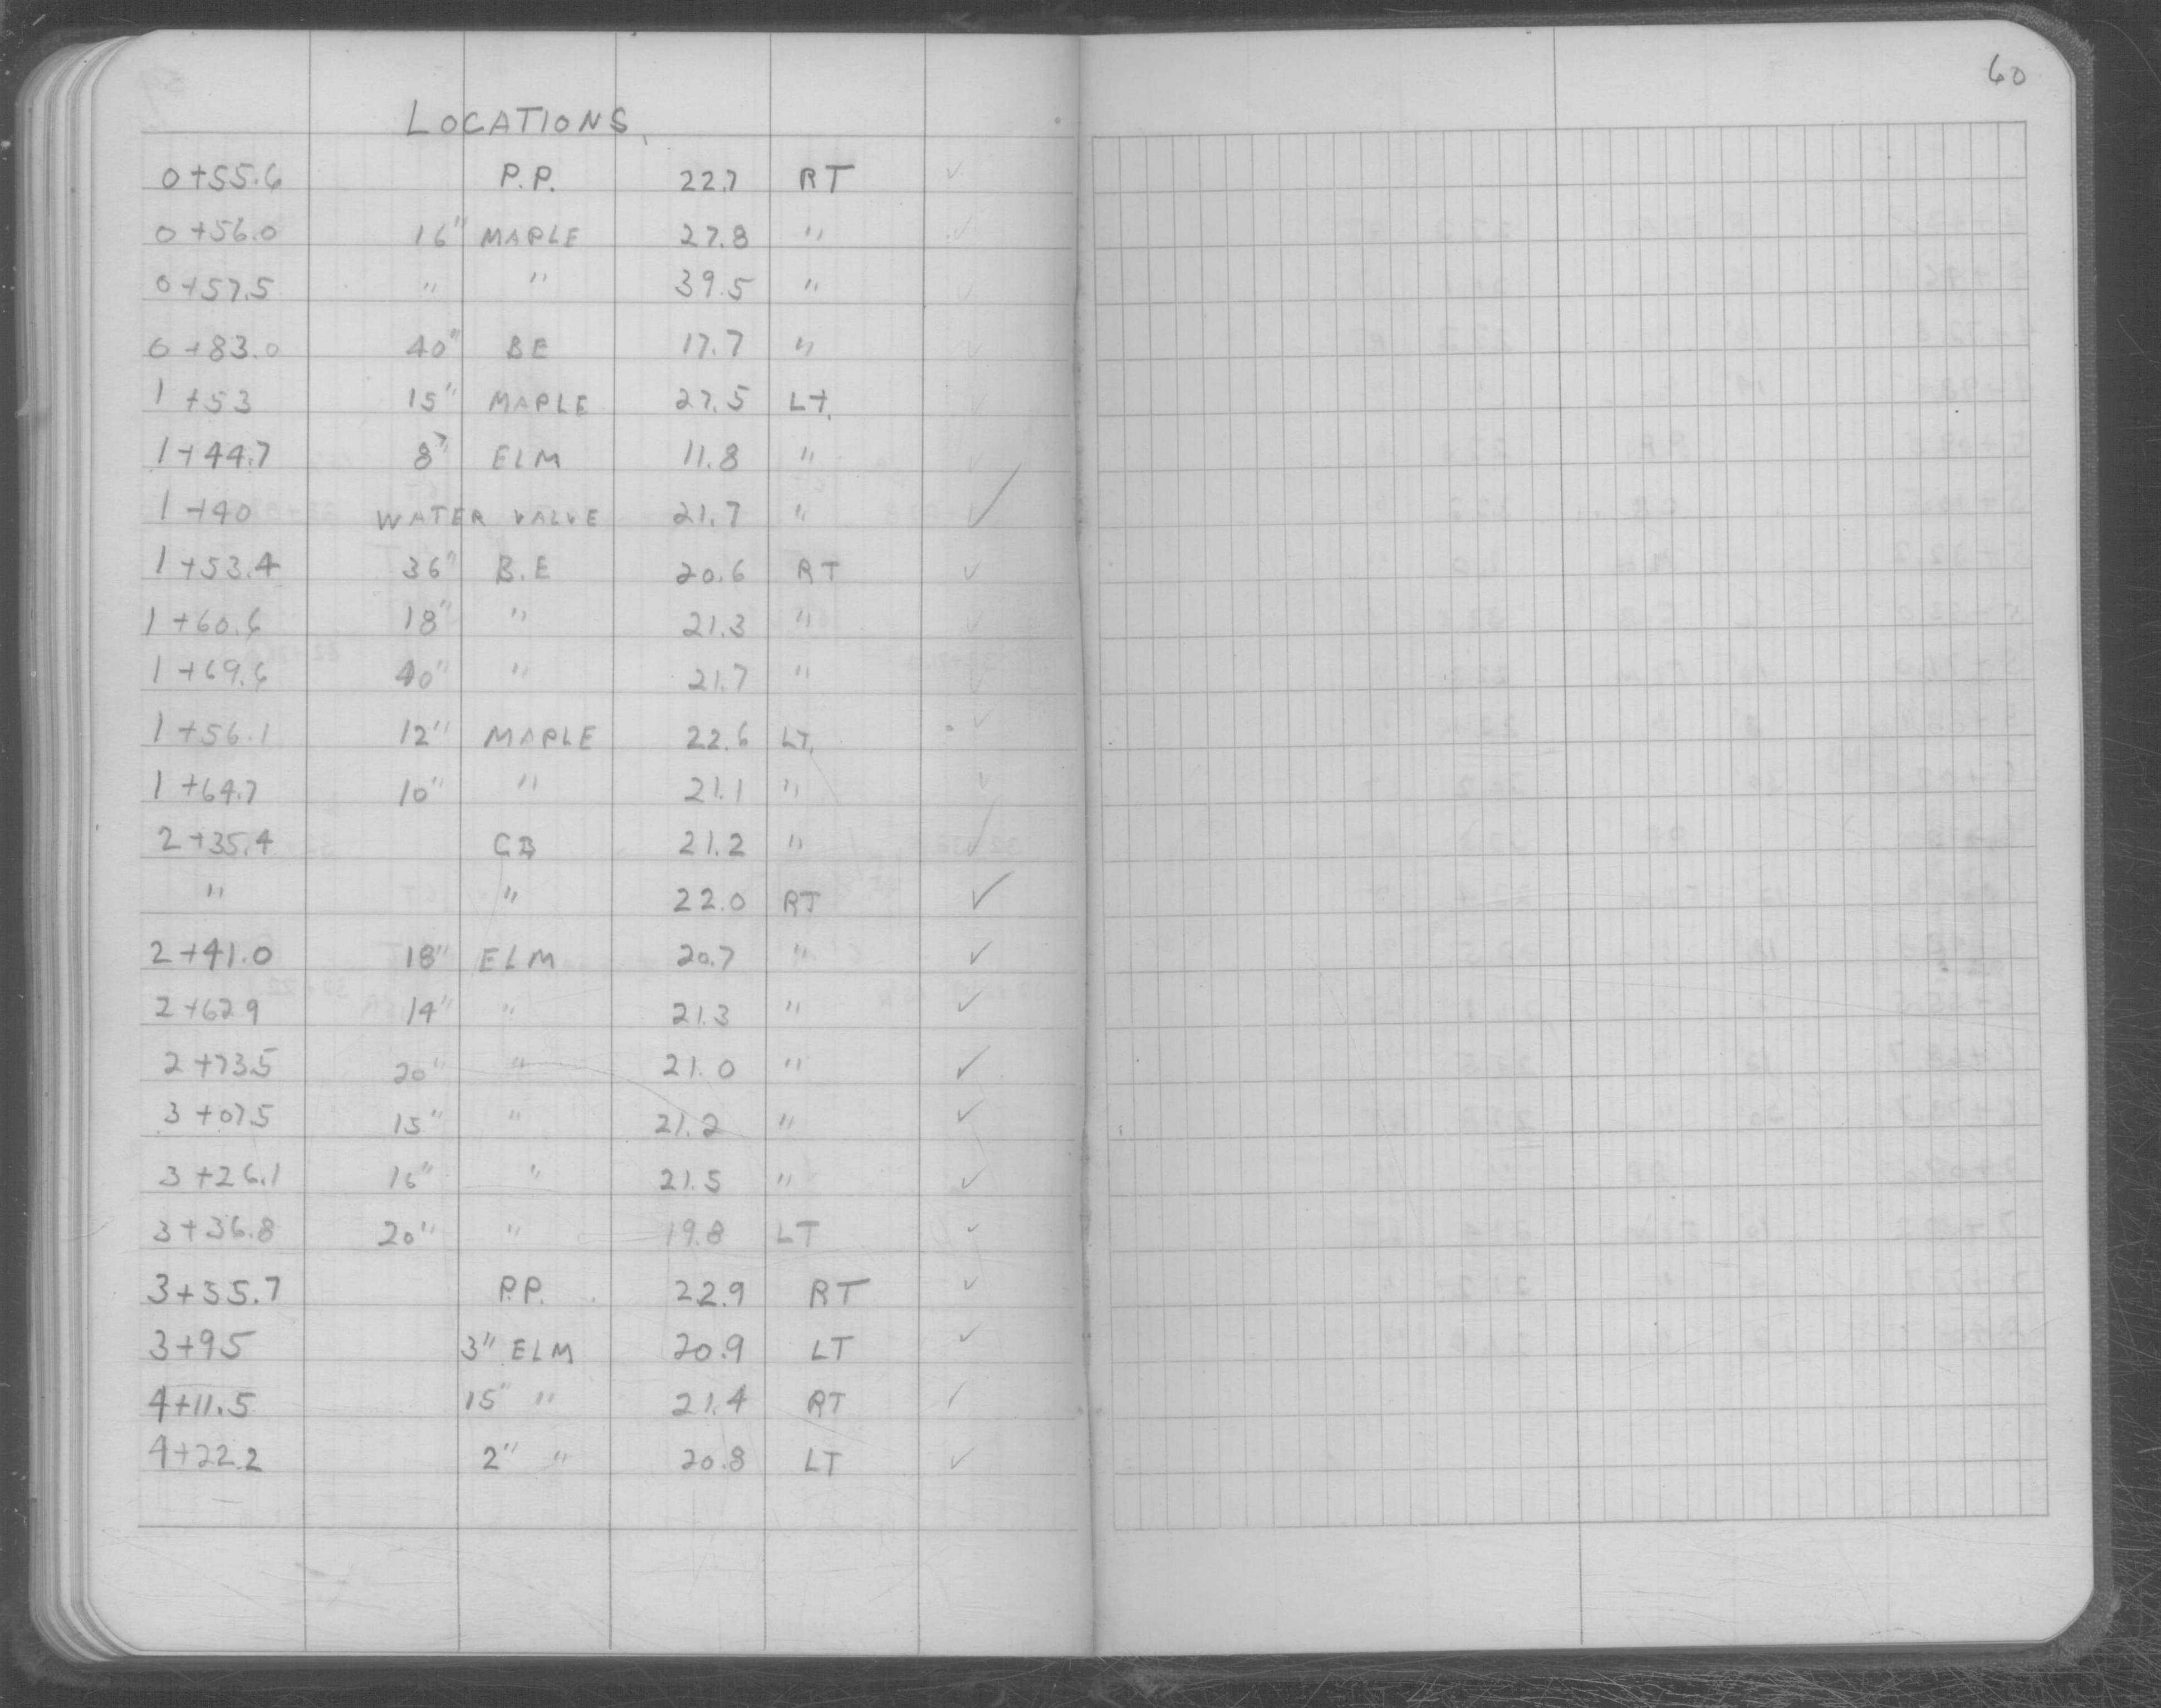 60
LOCATIONS
0+55.6 P.P. 22.7 RT ✓
0+56.0 16" MAPLE 27.8 " ✓
0+57.5 " " 39.5 " ✓
0+83.0 40" BE 17.7 " ✓
1+53 15" MAPLE 27.5 LT. ✓
1+44.7 8" ELM 11.8 " ✓
1+40 WATER VALVE 21.7 " ✓
1+53.4 36" B.E 20.6 RT ✓
1+60.6 18" " 21.3 " ✓
1+69.6 40" " 21.7 " ✓
1+56.1 12" MAPLE 22.6 LT. ✓
1+64.7 10" " 21.1 " ✓
2+35.4 CB 21.2 " ✓
" " 22.0 RT ✓
2+41.0 18" ELM 20.7 " ✓
2+62.9 14" " 21.3 " ✓
2+73.5 20" " 21.0 " ✓
3+07.5 15" " 21.2 " ✓
3+26.1 16" " 21.5 " ✓
3+36.8 20" " 19.8 LT ✓
3+55.7 P.P. 22.9 RT ✓
3+95 3" ELM 20.9 LT ✓
4+11.5 15" " 21.4 RT ✓
4+22.2 2" " 20.8 LT ✓